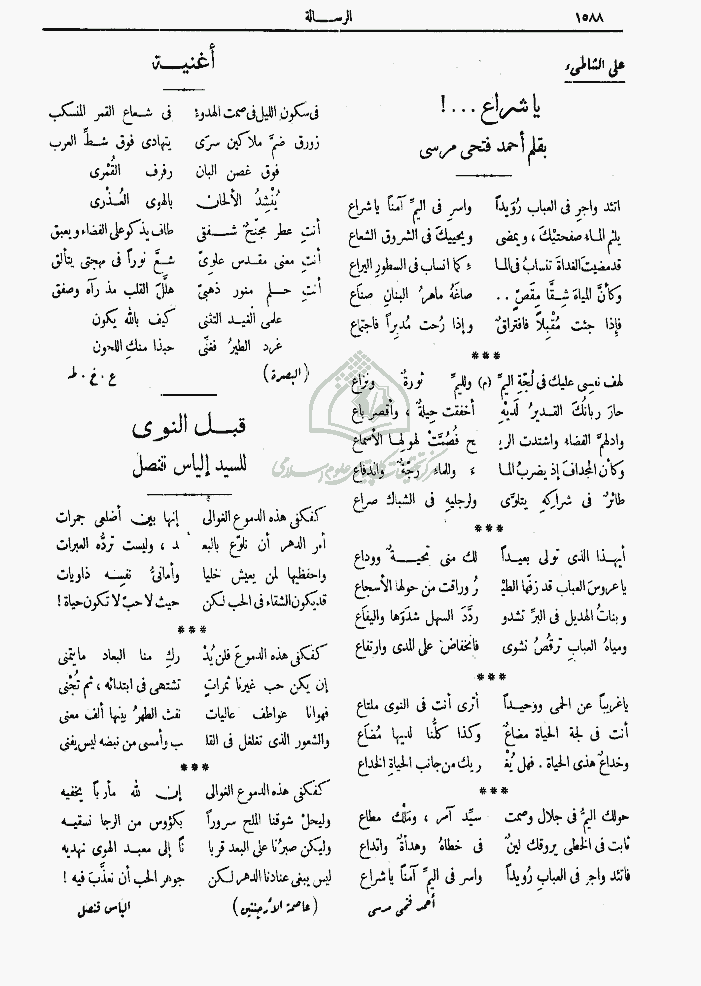 ١٥٨٨
الرسالة
على الشاطىء
يا شراع ...!
بقلم أحمد فتحى مرسى
اتئد واجرِ فى العباب رُوَيداً واسرِ فى اليمِّ آمناً يا شراع
يلثم الماء صفحتيْكَ ، ويمضى ويحييكَ فى الشروق الشعاع
قد مضيتَ الغداة تنساب فى المـا ءِ كما انساب فى السطور اليراع
وكأنَّ المياهَ شِقَّا مِقَصٍّ .. صاغَهُ ماهرُ البنانِ صنَاع
فإذا جئت مُقْبِلاً فافتراقٌ وإذا رُحت مُدبِراً فاجتماع
***
لهف نفسى عليك فى لُجّةِ اليمِّ (م) ولليمِّ ثورةٌ ونزاع
حارَ ربانُكَ القديرُ لديْهِ أخفقت حِيلةٌ ، وأقصر باع
وادلهمَّ الفضاء واشتدت الريـ ـح فصُمَّتْ لهولها الأسماع
وكأن المجدافَ إذ يضربُ المـا ء وللماءِ رجّةٌ واندفاع
طائرٌ فى شراكِهِ يتلوَّى ولرجليهِ فى الشباك صراع
***
أيهـذا الذى تولى بعيـداً لك منى تحيـةٌ ووداع
يا عروسَ العباب قد زفّها الطيْـ ـرُ وراقت من حولها الأسجاع
وبناتُ الهديل فى البرِّ تشدو ردَّدَ السهل شدْوَها واليفَاع
ومياهُ العبابِ ترقُصُ نشوى فانخفاضٌ على المدى وارتفاع
***
يا غريباً عن الحمى ووحيـداً أترى أنت فى النوى ملتاع
أنت فى لجة الحياة مضاعٌ وكذا كلُّنا لديها مُضَاع
وخداعٌ هذى الحياة . فهل يُغْـ ـريك من جانب الحياةِ الخداع
***
حولك اليمُّ فى جلال وصمت سيِّد آمر ، ومَلْك مطاع
ثابت فى الخطى يروقك لينٌ فى خطاهُ وهدأةٌ واتداع
فاتئد واجرِ فى العبابِ رُويداً واسر فى اليمِّ آمناً يا شراع
أحمد فتحى مرسى
أغنيـة
فى سكون الليل فى صمت الهدوء فى شعاع القمر المنسكب
زورق ضمَّ ملاكين سرَى يتهادى فوق شطِّ العرب
فوق غصن البان رفرف القُمْرى
يُنْشِدُ الألحان بالهوى العُـذْرى
أنتِ عطر مجنّحٌ شـفقى طاف يذكو على الفضاء ويعبق
أنتِ معنى مقـدس علوىّ شعَّ نوراً فى مهجتى يتألق
أنتِ حلـم منور ذهبىّ هلَّلَ القلب مذ رآه وصفق
علمى الغيد التثنى كيف بالله يكون
غرد الطيرُ فغنّى حبذا منكِ اللحون
(البصرة) ع . غ . طه
قبـل النوى
للسيد إلياس قنصل
كفكفى هذه الدموع الغوالى إنها بين أضلعى جمرات
أمر الدهر أن نلوّع بالبعـ ـد ، وليست تردّه العبرات
واحفظيها لمن يعيش خليا وأمانىُّ نفسِه ذاويات
قد يكون الشقاء فى الحب لكن حيث لا حبّ لا تكون حياة !
***
كفكفى هذه الدموعَ فلن يُدْ رك منا البعاد ما يتمنى
إن يكن حب غيرنا ثمراتٍ تشتهى فى ابتدائه ، ثم تُجْنى
فهوانا عواطف عاليات نفث الطهرُ بينها ألف معنى
والشعور الذى تغلغل فى القلـ ـب وأمسى من نبضه ليس يفنى
***
كفكفى هذه الدموع الغوالى إن لله مأرباً يخفيه
وليحلْ شوقنا الملح سروراً بكؤوس من الرجا نسقيـه
وليكن صبرُنا على البعد قربا نًا إلى معبد الهوى نهديه
ليس يبغى عنادنا الدهر لكن جوهر الحب أن نعذَّب فيه !
(عاصمة الأرجنتين) الياس قنصل